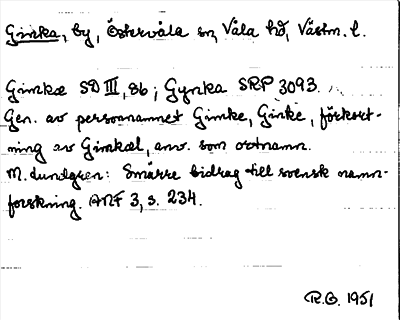 Ginka, by, Östervåla sn, Våla hd, Västm. l.
Gimkæ SD III, 86; Gynka SRP 3093.
Gen. av personnamnet Gimke, Ginke, förkort-
ning av Gimkæl, anv. som ortnamn.
M. Lundgren: Smärre bidrag till svensk namn-
forskning. ANF 3, s. 234.
R.O. 1951